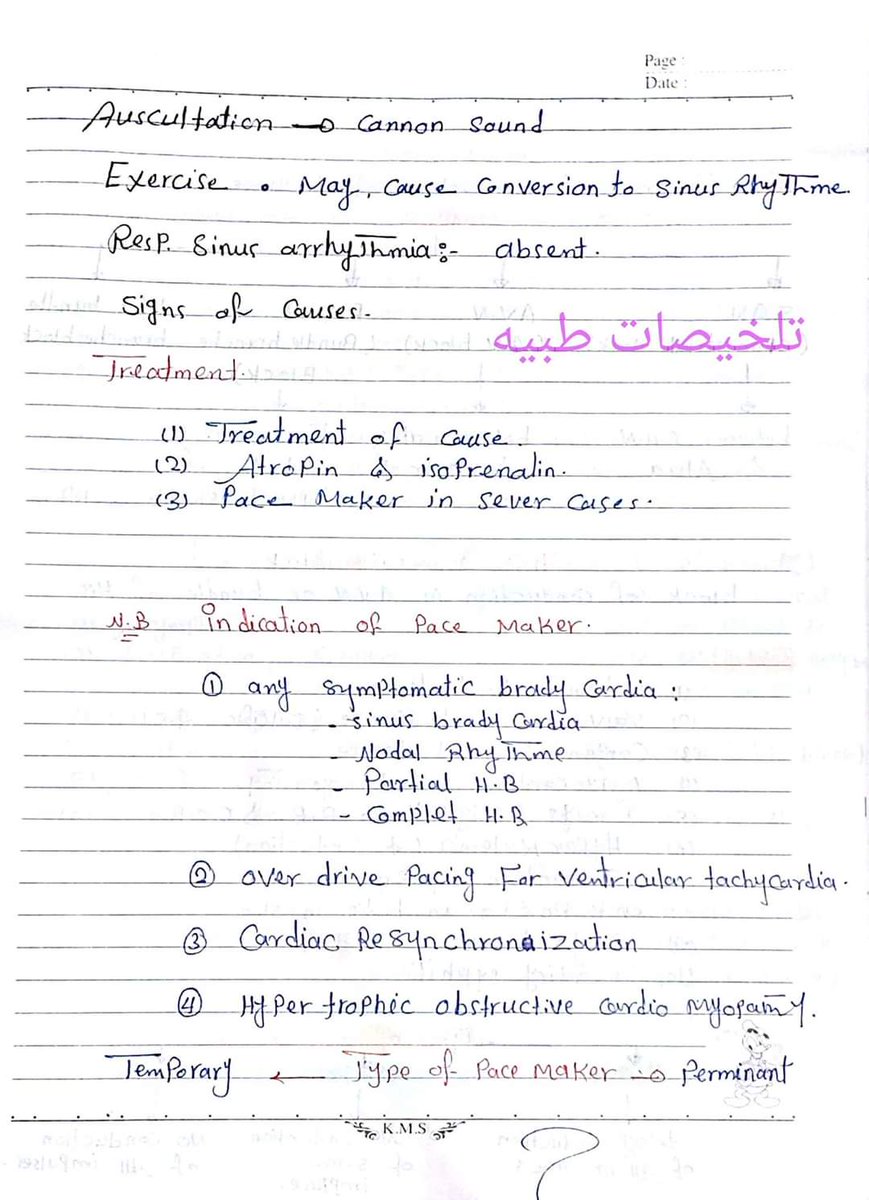 Page :
Date :
Auscultation → Cannon Sound
Exercise • May, Cause Conversion to Sinus RhyThme.
Resp. Sinus arrhyThmia :- absent.
Signs of Causes.
تلخيصات طبيه
Treatment.
(1) Treatment of Cause.
(2) Atropin & isoprenalin.
(3) Pace Maker in Sever Cases.
N.B indication of Pace Maker.
① any symptomatic brady Cardia :
- sinus brady Cardia
- Nodal RhyThme
- Partial H.B
- Complet H.B
② over drive Pacing For ventricular tachycardia.
③ Cardiac Resynchronization
④ Hyper trophic obstructive Cardio Myopathy.
Temporary ← Type of Pace Maker → Perminant
K.M.S